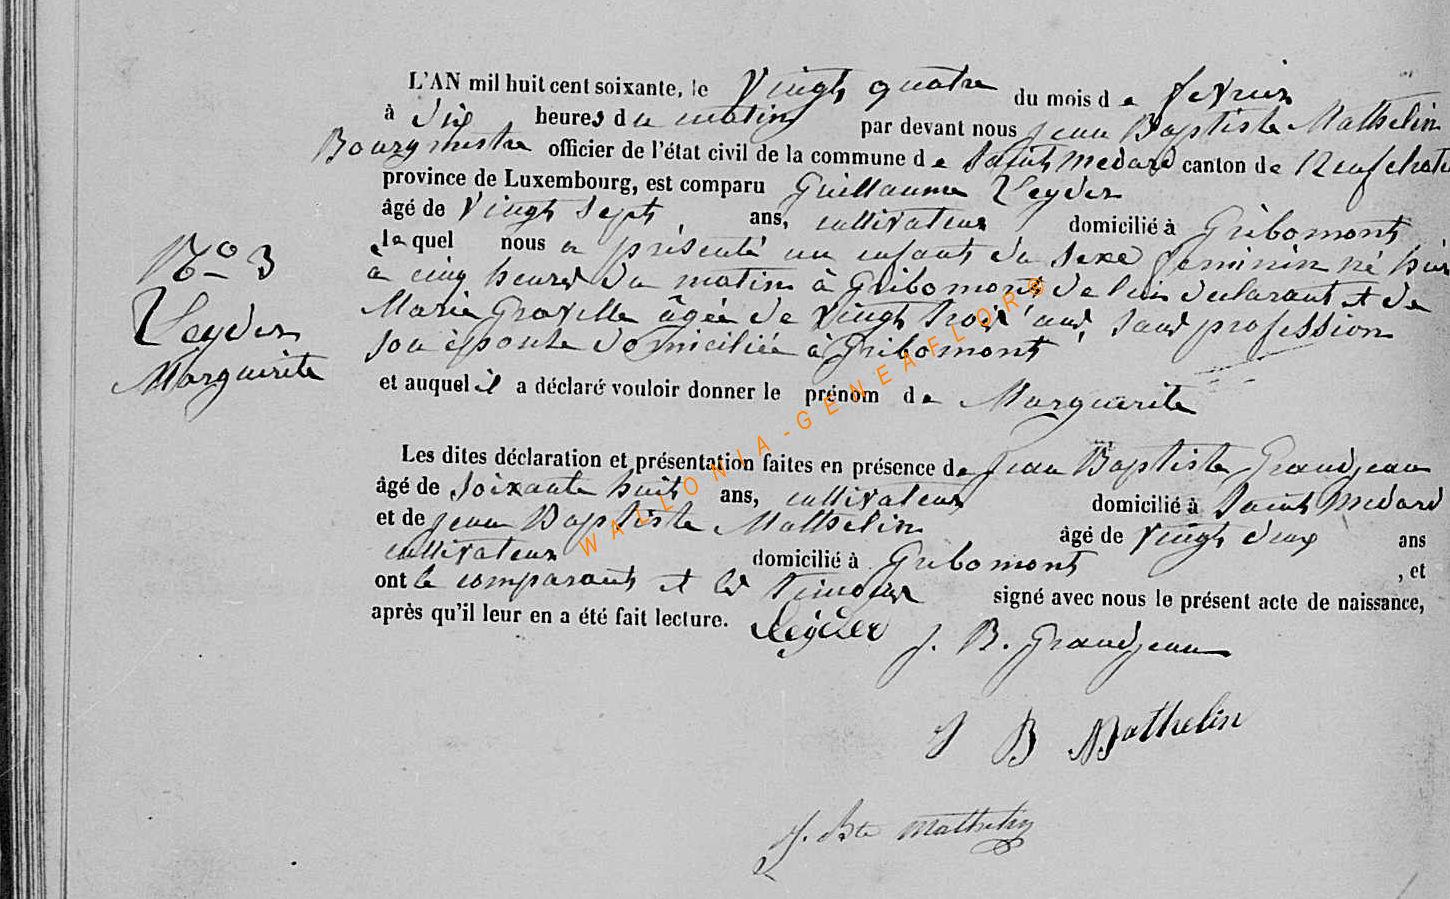 L'AN mil huit cent soixante, le Vingt quatre du mois de fevrier
à dix heures du matin par devant nous Jean Baptiste Mathelin
Bourgmestre officier de l'état civil de la commune de Saint Medard canton de Neufchateau
province de Luxembourg, est comparu Guillaume Leyder
âgé de Vingt Sept ans, cultivateur domicilié à Gribomont
lequel nous a présenté un enfant du sexe feminin né hier
à cinq heures du matin à Gribomont de lui declarant et de
Marie Graville âgée de Vingt trois ans, sans profession
son épouse domiciliée à Gribomont
et auquel il a déclaré vouloir donner le prénom de Marguerite
No 3
Leyder
Marguerite
Les dites déclaration et présentation faites en présence de Jean Baptiste Grandjean
âgé de soixante huit ans, cultivateur domicilié à Saint Medard
et de Jean Baptiste Mathelin âgé de Vingt deux ans
cultivateur domicilié à Gribomont , et
ont le comparant et les temoins signé avec nous le présent acte de naissance,
après qu'il leur en a été fait lecture. Leÿder J. B. Grandjean
J B Mathelin
J. Bte Mathelin
WALLONIA-GENEAFLOR®